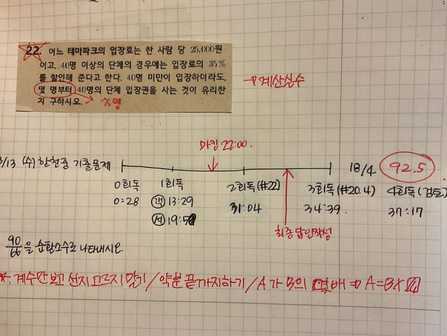 22. 어느 테마파크의 입장료는 한 사람 당 25,000원
이고, 40명 이상의 단체의 경우에는 입장료의 35%
를 할인해 준다고 한다. 40명 미만이 입장하더라도,
몇 명부터 40명의 단체 입장권을 사는 것이 유리한
지 구하시오.
→계산실수
마킹 22:00.
3/13 (수) 한현중 기출문제
18/4
92.5
0회독 1회독 2회독(#22) 3회독(#20.4) 4회독(검토)
0:28 객 13:29 31:04 34:39. 37:17
서 19:5
최종 답안작성
90/66을 순환소수로 나타내시오.
계수만 보고 선지 고르지 말기/약분 끝까지하기/A가 B의 배 ⇒ A=B×